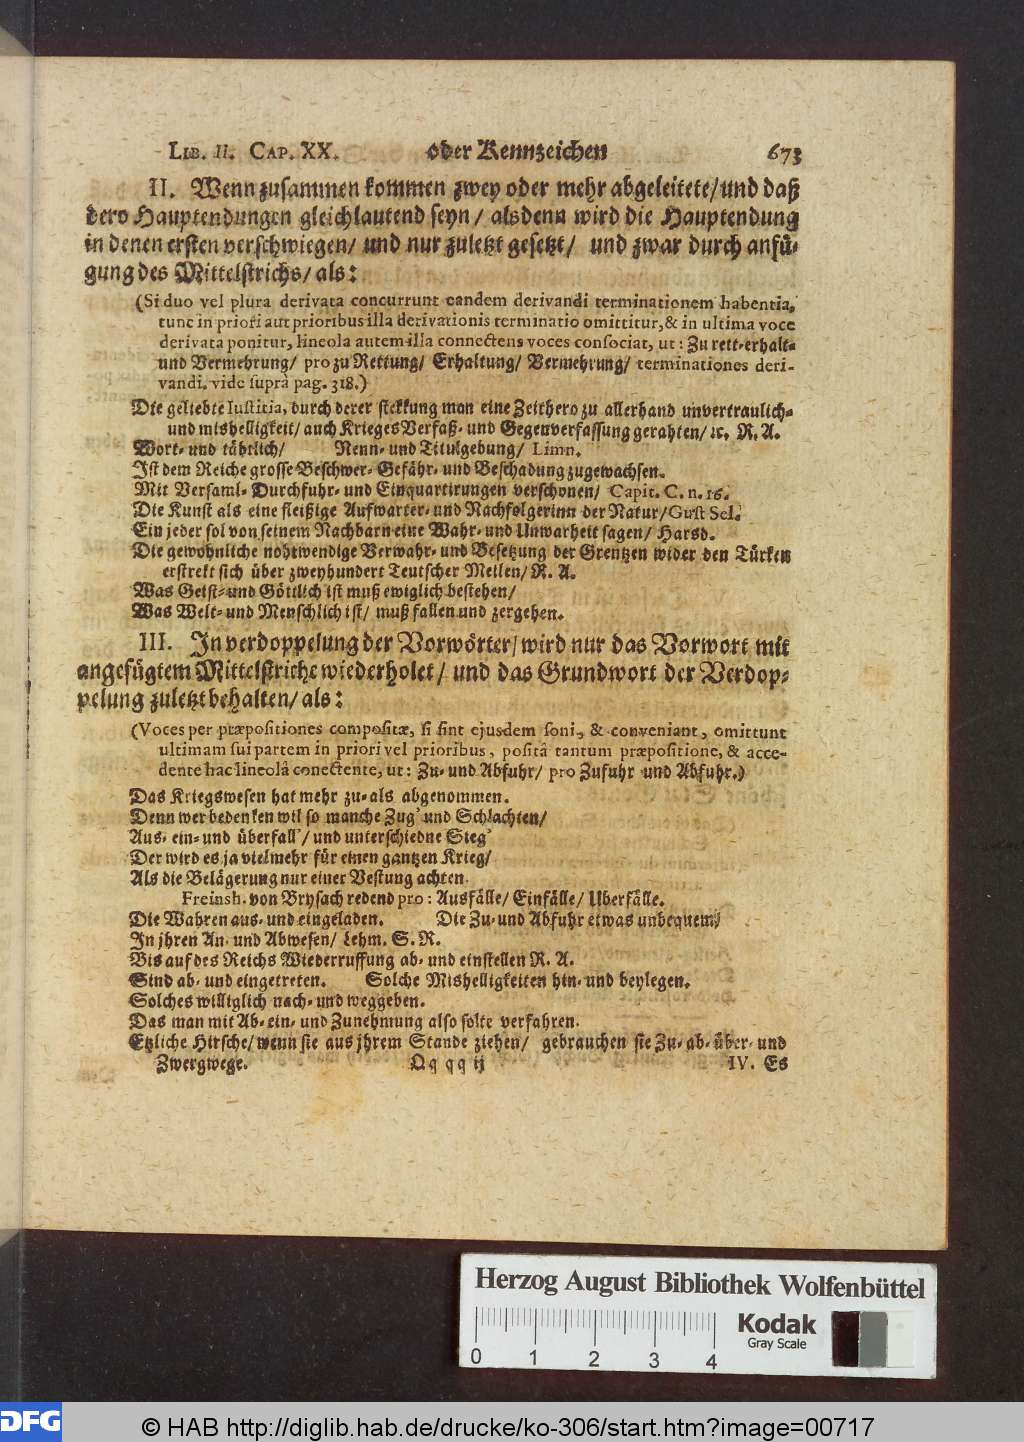 LIB. II. CAP. XX. oder Kennzeichen 673
II. Wenn zusammen kommen zwey oder mehr abgeleitete/und daß
dero Hauptendungen gleichlautend seyn/ alsdenn wird die Hauptendung
in denen ersten verschwiegen/ und nur zuletzt gesetzt/ und zwar durch anfü-
gung des Mittelstrichs/ als:
(Si duo vel plura derivata concurrunt eandem derivandi terminationem habentia,
tunc in priori aut prioribus illa derivationis terminatio omittitur, & in ultima voce
derivata ponitur, lineola autem illa connectens voces consociat, ut: Zu rett-erhalt-
und Vermehrung/ pro zu Rettung/ Erhaltung/ Vermehrung/ terminationes deri-
vandi. vide suprà pag. 318.)
Die geliebte Iustitia, durch derer stekkung man eine Zeithero zu allerhand unvertraulich-
und mishelligkeit/ auch Krieges Verfaß- und Gegenverfassung gerahten/ ꝛc. R. A.
Wort- und tähtlich/ Nenn- und Titulgebung/ Limn.
Ist dem Reiche grosse Beschwer- Gefähr- und Beschadung zugewachsen.
Mit Versaml- Durchfuhr- und Einquartirungen verschonen/ Capit. C. n. 16.
Die Kunst als eine fleißige Aufwarter- und Nachfolgerinn der Natur/ Gust Sel.
Ein jeder sol von seinem Nachbarn eine Wahr- und Unwarheit sagen/ Harsd.
Die gewöhnliche nohtwendige Verwahr- und Besetzung der Grentzen wider den Türken
erstrekt sich über zweyhundert Teutscher Meilen/ R. A.
Was Geist- und Göttlich ist muß ewiglich bestehen/
Was Welt- und Menschlich ist/ muß fallen und zergehen.
III. In verdoppelung der Vorwörter/ wird nur das Vorwort mit
angefügtem Mittelstriche wiederholet/ und das Grundwort der Verdop-
pelung zuletzt behalten/ als:
(Voces per præpositiones compositæ, si sint ejusdem soni, & conveniant, omittunt
ultimam sui partem in priori vel prioribus, positâ tantum præpositione, & acce-
dente hac lineolâ conectente, ut: Zu- und Abfuhr/ pro Zufuhr und Abfuhr.)
Das Kriegswesen hat mehr zu- als abgenommen.
Denn wer bedenken wil so manche Zug' und Schlachten/
Aus- ein- und überfall'/ und unterschiedne Sieg'
Der wird es ja vielmehr für einen gantzen Krieg/
Als die Belägerung nur einer Vestung achten.
Freinsh. von Brysach redend pro: Ausfälle/ Einfälle/ Uberfälle.
Die Wahren aus- und eingeladen. Die Zu- und Abfuhr etwas unbequem/
In jhren An- und Abwesen/ Lehm. S. R.
Bis auf des Reichs Wiederruffung ab- und einstellen R. A.
Sind ab- und eingetreten. Solche Mishelligkeiten hin- und beylegen.
Solches williglich nach- und weggeben.
Das man mit Ab- ein- und Zunehmung also solte verfahren.
Etzliche Hirsche/ wenn sie aus jhrem Stande ziehen/ gebrauchen sie Zu- ab- über- und
Zwergwege. Qq qq ij IV. Es
Herzog August Bibliothek Wolfenbüttel
Kodak
Gray Scale
0 1 2 3 4
DFG © HAB http://diglib.hab.de/drucke/ko-306/start.htm?image=00717